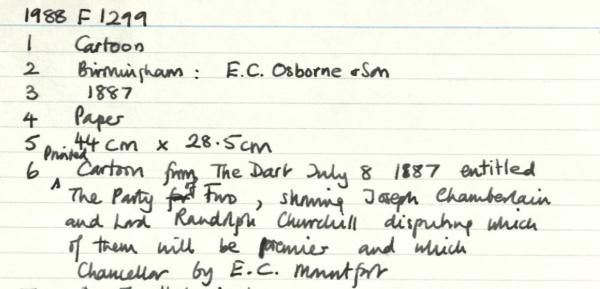 1988 F 1299
1 Cartoon
2 Birmingham : E.C. Osborne & Son
3 1887
4 Paper
5 44 cm x 28.5 cm
6 Printed Cartoon from The Dart July 8 1887 entitled
The Party of Two, showing Joseph Chamberlain
and Lord Randolph Churchill disputing which
of them will be premier and which
Chancellor by E.C. Mountfort